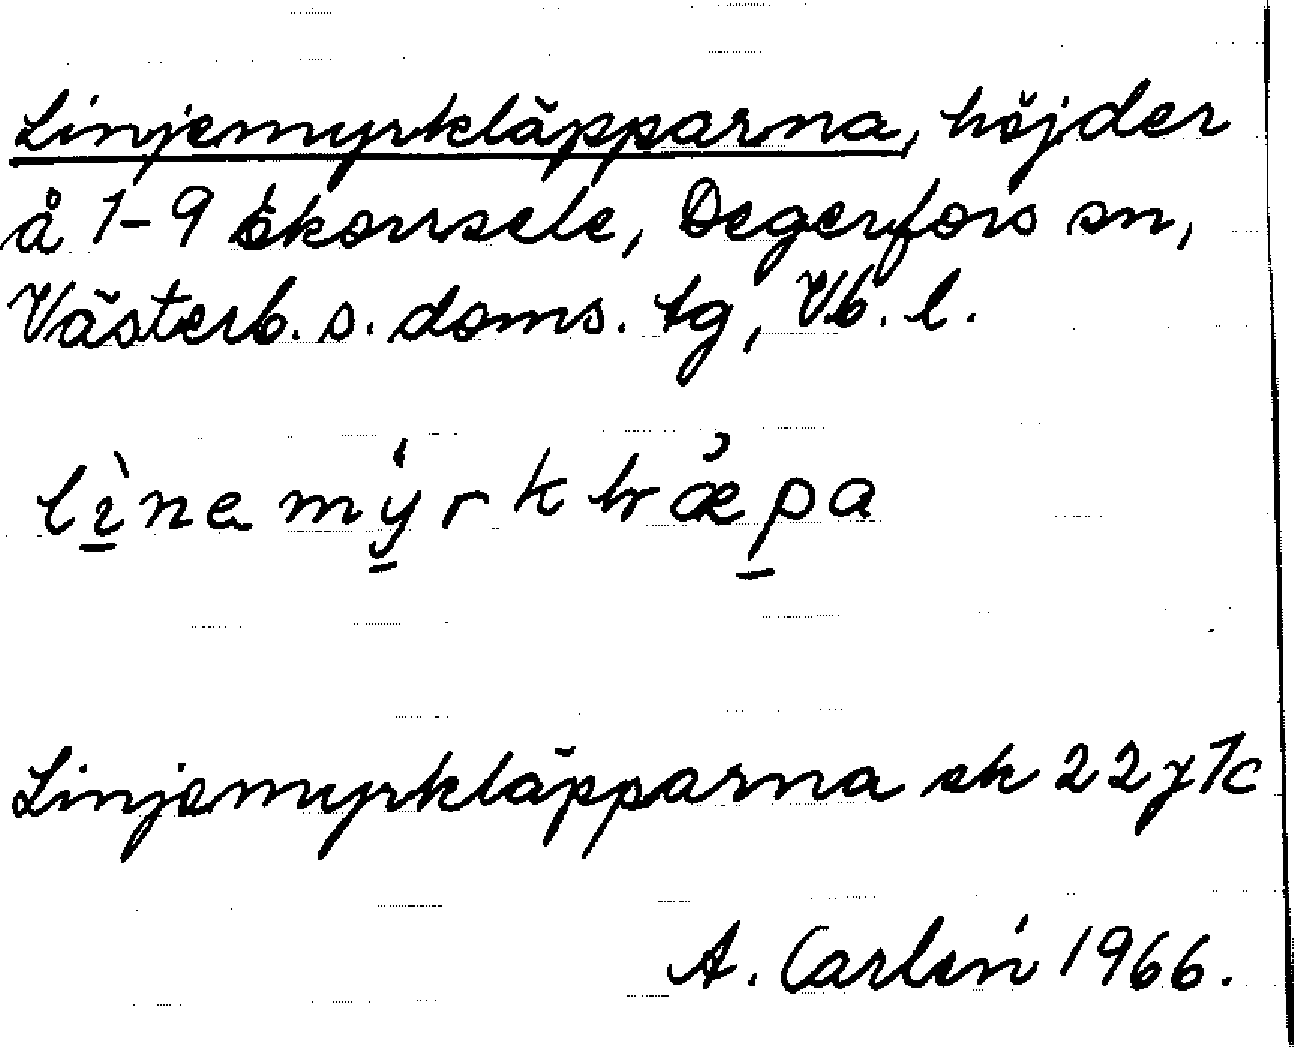 Linjemyrkläpparna, höjder
å 1-9 Ekorrsele, Degerfors sn,
Västerb. s. doms. tg, Vb. l.
Linjemyrkläpparna ek 22 j 7c
A. Carlén 1966.